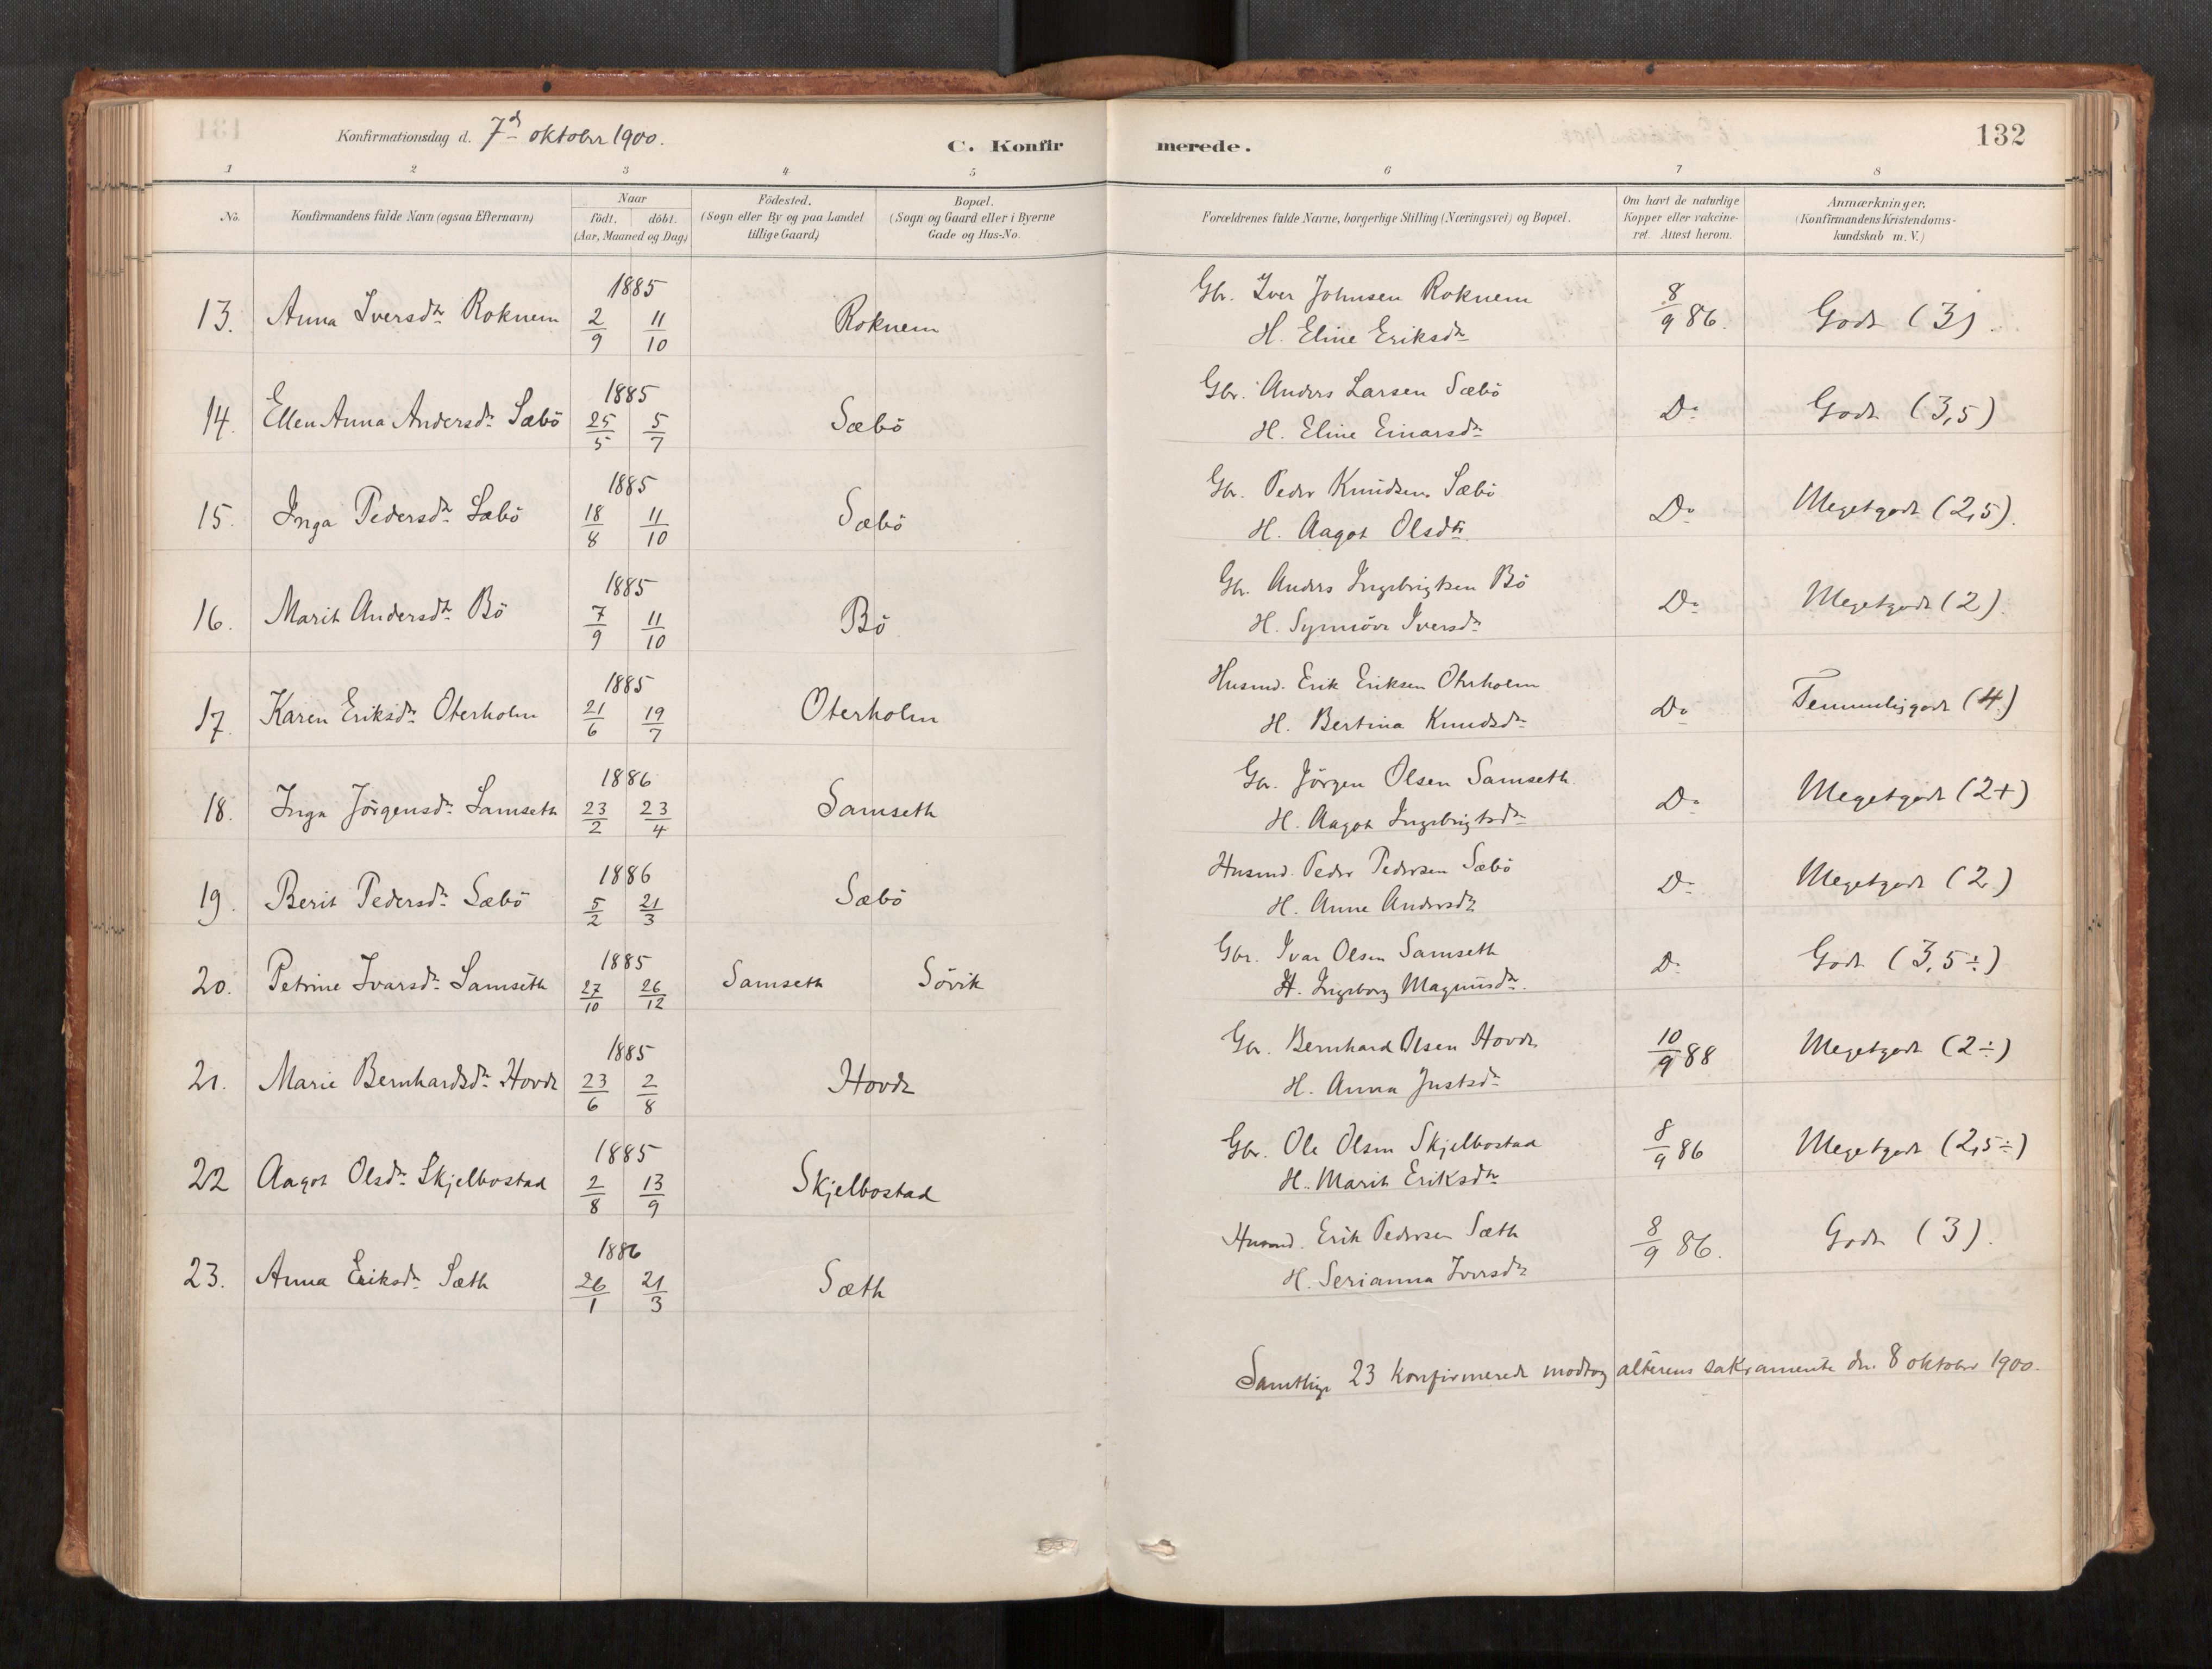 131
Konfirmationsdag d. 7d oktober 1900.
C. Konfirmerede.
132
1 2 3 4 5 6 7 8
No.
Konfirmandens fulde Navn (ogsaa Efternavn)
Naar
födt. döbt.
(Aar, Maaned og Dag.)
Födested.
(Sogn eller By og paa Landet
tillige Gaard.)
Bopæl.
(Sogn og Gaard eller i Byerne
Gade og Hus-No.
Forældrenes fulde Navne, borgerlige Stilling (Næringsvei) og Bopæl.
Om havt de naturlige
Kopper eller vakcine-
ret. Attest herom.
Anmærkninger.
(Konfirmandens Kristendoms-
kundskab m. V.)
1885
13. Anna Iversdtr Roknem 2/9 11/10 Roknem Gbr. Iver Johnsen Roknem 8/9 86. Godt (3).
H. Eline Eriksdtr
1885
14. Ellen Anna Andersdr Sæbö 25/5 5/7 Sæbö Gbr. Anders Larsen Sæbö Do Godt (3,5)
H. Eline Einarsdr
1885
15. Inga Pedersdr Sæbö 18/8 11/10 Sæbö Gbr. Peder Knudsen Sæbö Do Megetgodt (2,5).
H. Aagot Olsdtr
1885
16. Marit Andersdr Bö 7/9 11/10 Bö Gbr. Anders Ingebrigtsen Bö Do Megetgodt (2).
H. Synnöve Iversdr
1885
17. Karen Eriksdr Oterholm 21/6 19/7 Oterholm Husmd. Erik Eriksen Oterholm Do Temmeligodt (4)
H. Bertina Knudsdr
1886
18. Inga Jörgensdr Samseth 23/2 23/4 Samseth Gbr. Jörgen Olsen Samseth Do Megetgodt (2+)
H. Aagot Ingebrigtsdr
1886
19. Berit Pedersdr Sæbö 5/2 21/3 Sæbö Husmd. Peder Pedersen Sæbö Do Megetgodt (2)
H. Anne Andersdr
1885
20. Petrine Ivarsdr Samseth 27/10 26/12 Samseth Sövik Gbr. Ivar Olsen Samseth Do Godt (3,5÷)
H. Ingeborg Magnusdr.
1885
21. Marie Bernhardsdr Hovde 23/6 2/8 Hovde Gbr. Bernhard Olsen Hovde 10/9 88 Megetgodt (2÷)
H. Anna Justsdr
1885
22 Aagot Olsdr Skjelbostad 2/8 13/9 Skjelbostad Gbr. Ole Olsen Skjelbostad 8/9 86 Megetgodt (2,5÷)
H. Marit Eriksdtr
1886
23. Anna Eriksdr Sæth 26/1 21/3 Sæth Husmd. Erik Pedersen Sæth 8/9 86. Godt (3).
H. Serianna Iversdr
Samtlige 23 konfirmerede modtog alterens sakramente den 8 oktober 1900.